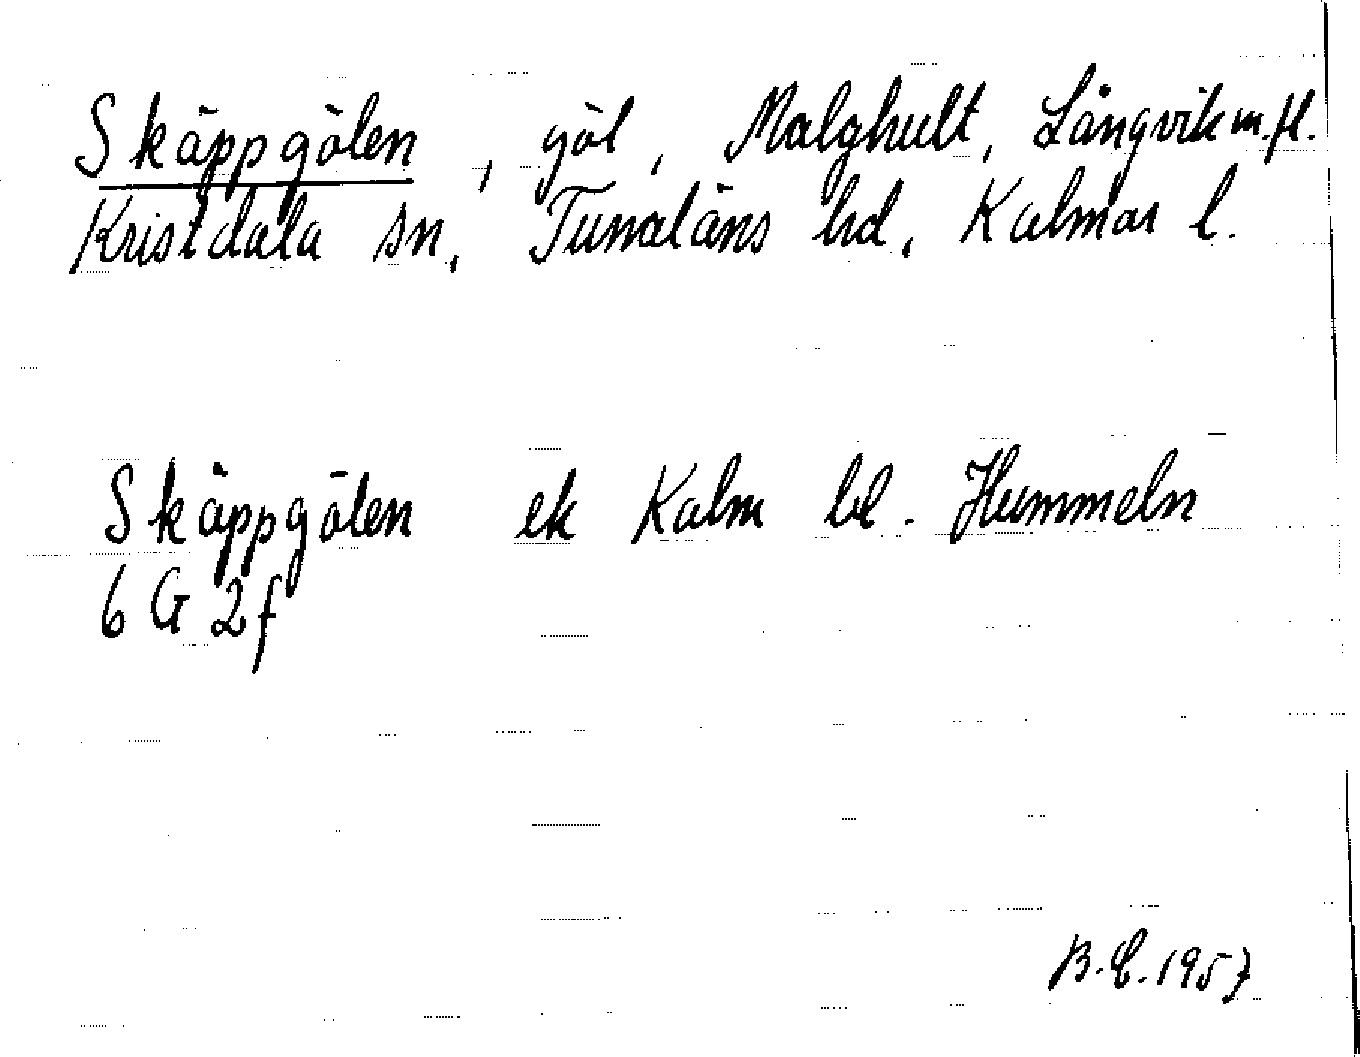 Skäppgölen, göl, Malghult, Långvik m.fl.
Kristdala sn, Tunaläns hd, Kalmar l.
Skäppgölen ek Kalm bl. Hummeln
6 G 2f
B.E. 1957